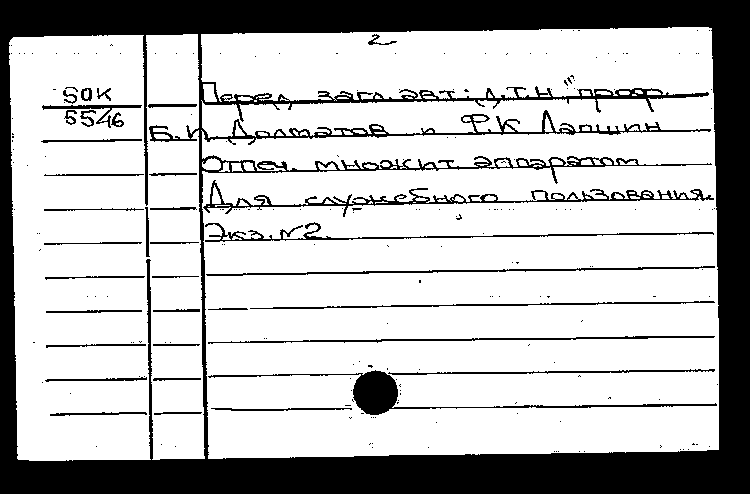 2
50К Перед загл. авт: д.т.н., проф.
5546 Б.И. Долматов и Ф.К Лапшин
Отпеч. множит. аппаратом
Для служебного пользования.
Экз. №2.